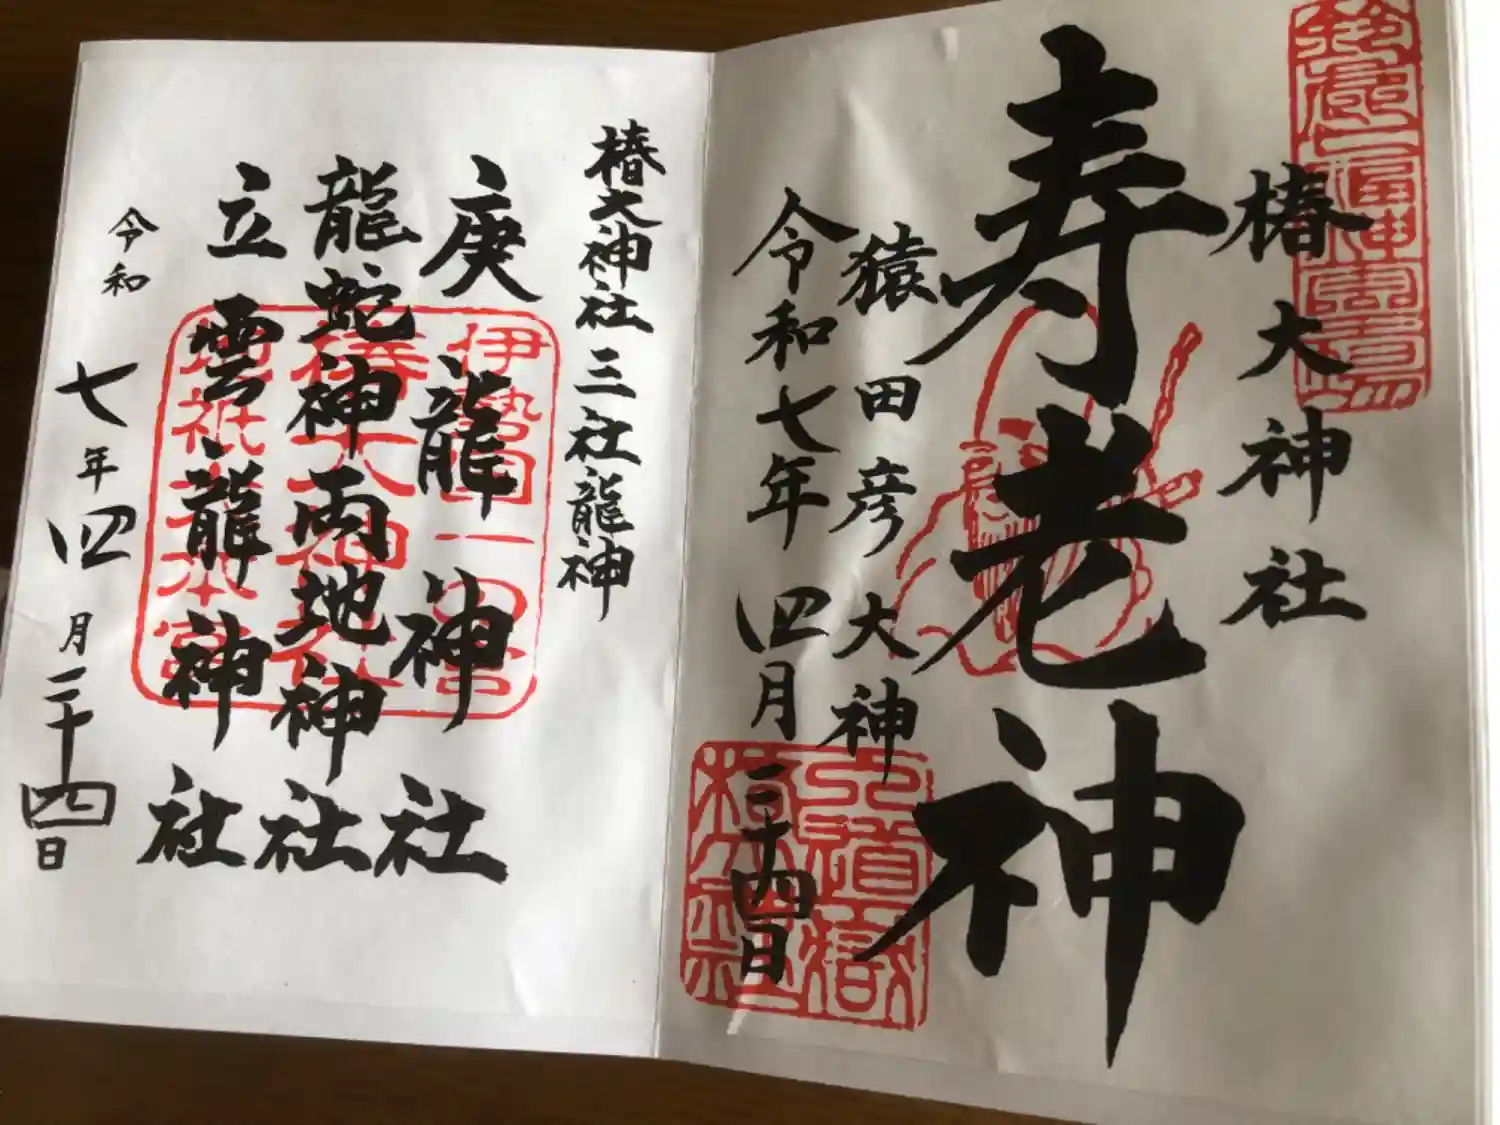 椿大神社
寿老神
猿田彦大神
令和七年四月二十四日
椿大神社 三社龍神
庚龍神社
龍蛇神両地神社
立雲龍神社
令和七年四月二十四日
伊勢国一の宮
椿大神社
地祇大本宮